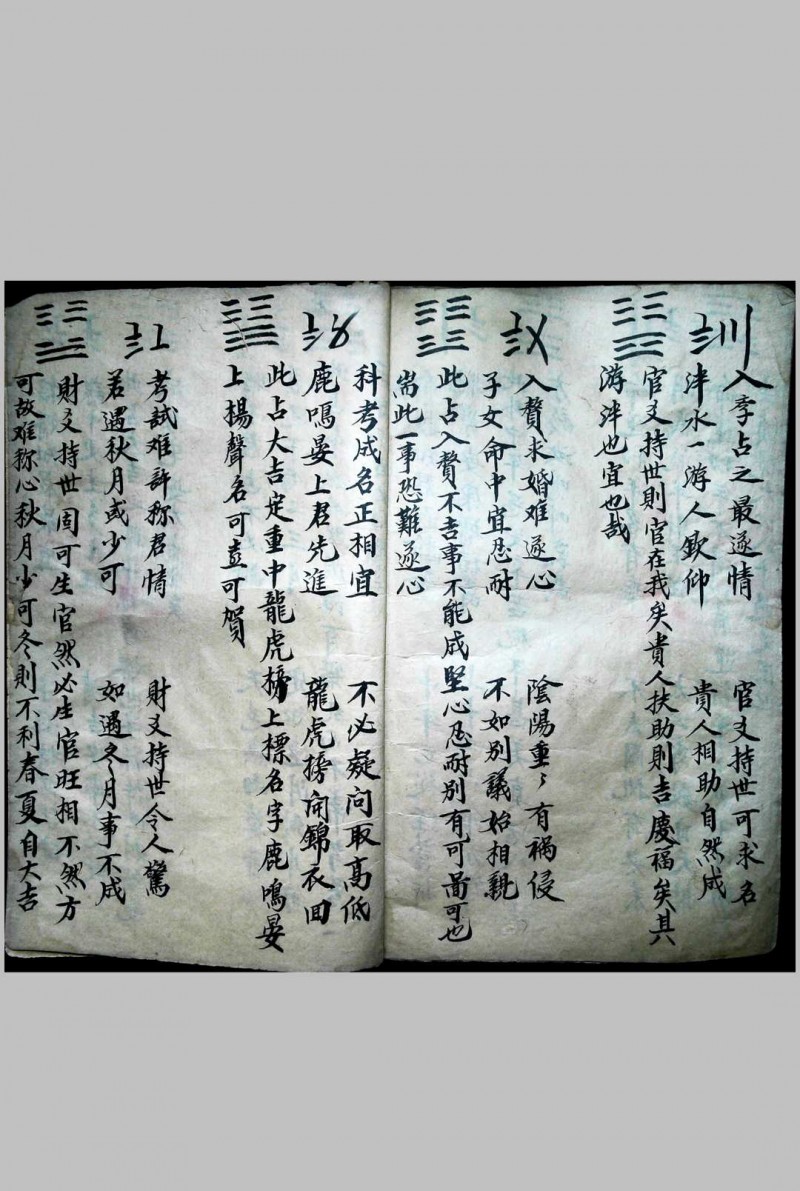 入季占之最遂情 官爻持世可求名
泮水一游人欽仰 貴人相助自然成
官爻持世則官在我矣貴人扶助則吉慶福矣其
游泮也宜也哉
入贅求婚难遂心 陰陽重重有祸侵
子女命中宜忍耐 不如别議始相親
此占入贅不吉事不能成堅心忍耐别有可啚可也
耑此一事恐難遂心
科考成名正相宜 不必疑问取高低
鹿鳴晏上君先進 龍虎榜开錦衣回
此占大吉定重中龍虎榜上標名字鹿鳴晏
上楊聲名可喜可賀
考試难許称君情 財爻持世令人驚
若遇秋月或少可 如遇冬月事不成
財爻持世固可生官然必生官旺相不然方
可故难称心秋月少可冬則不利春夏自大吉